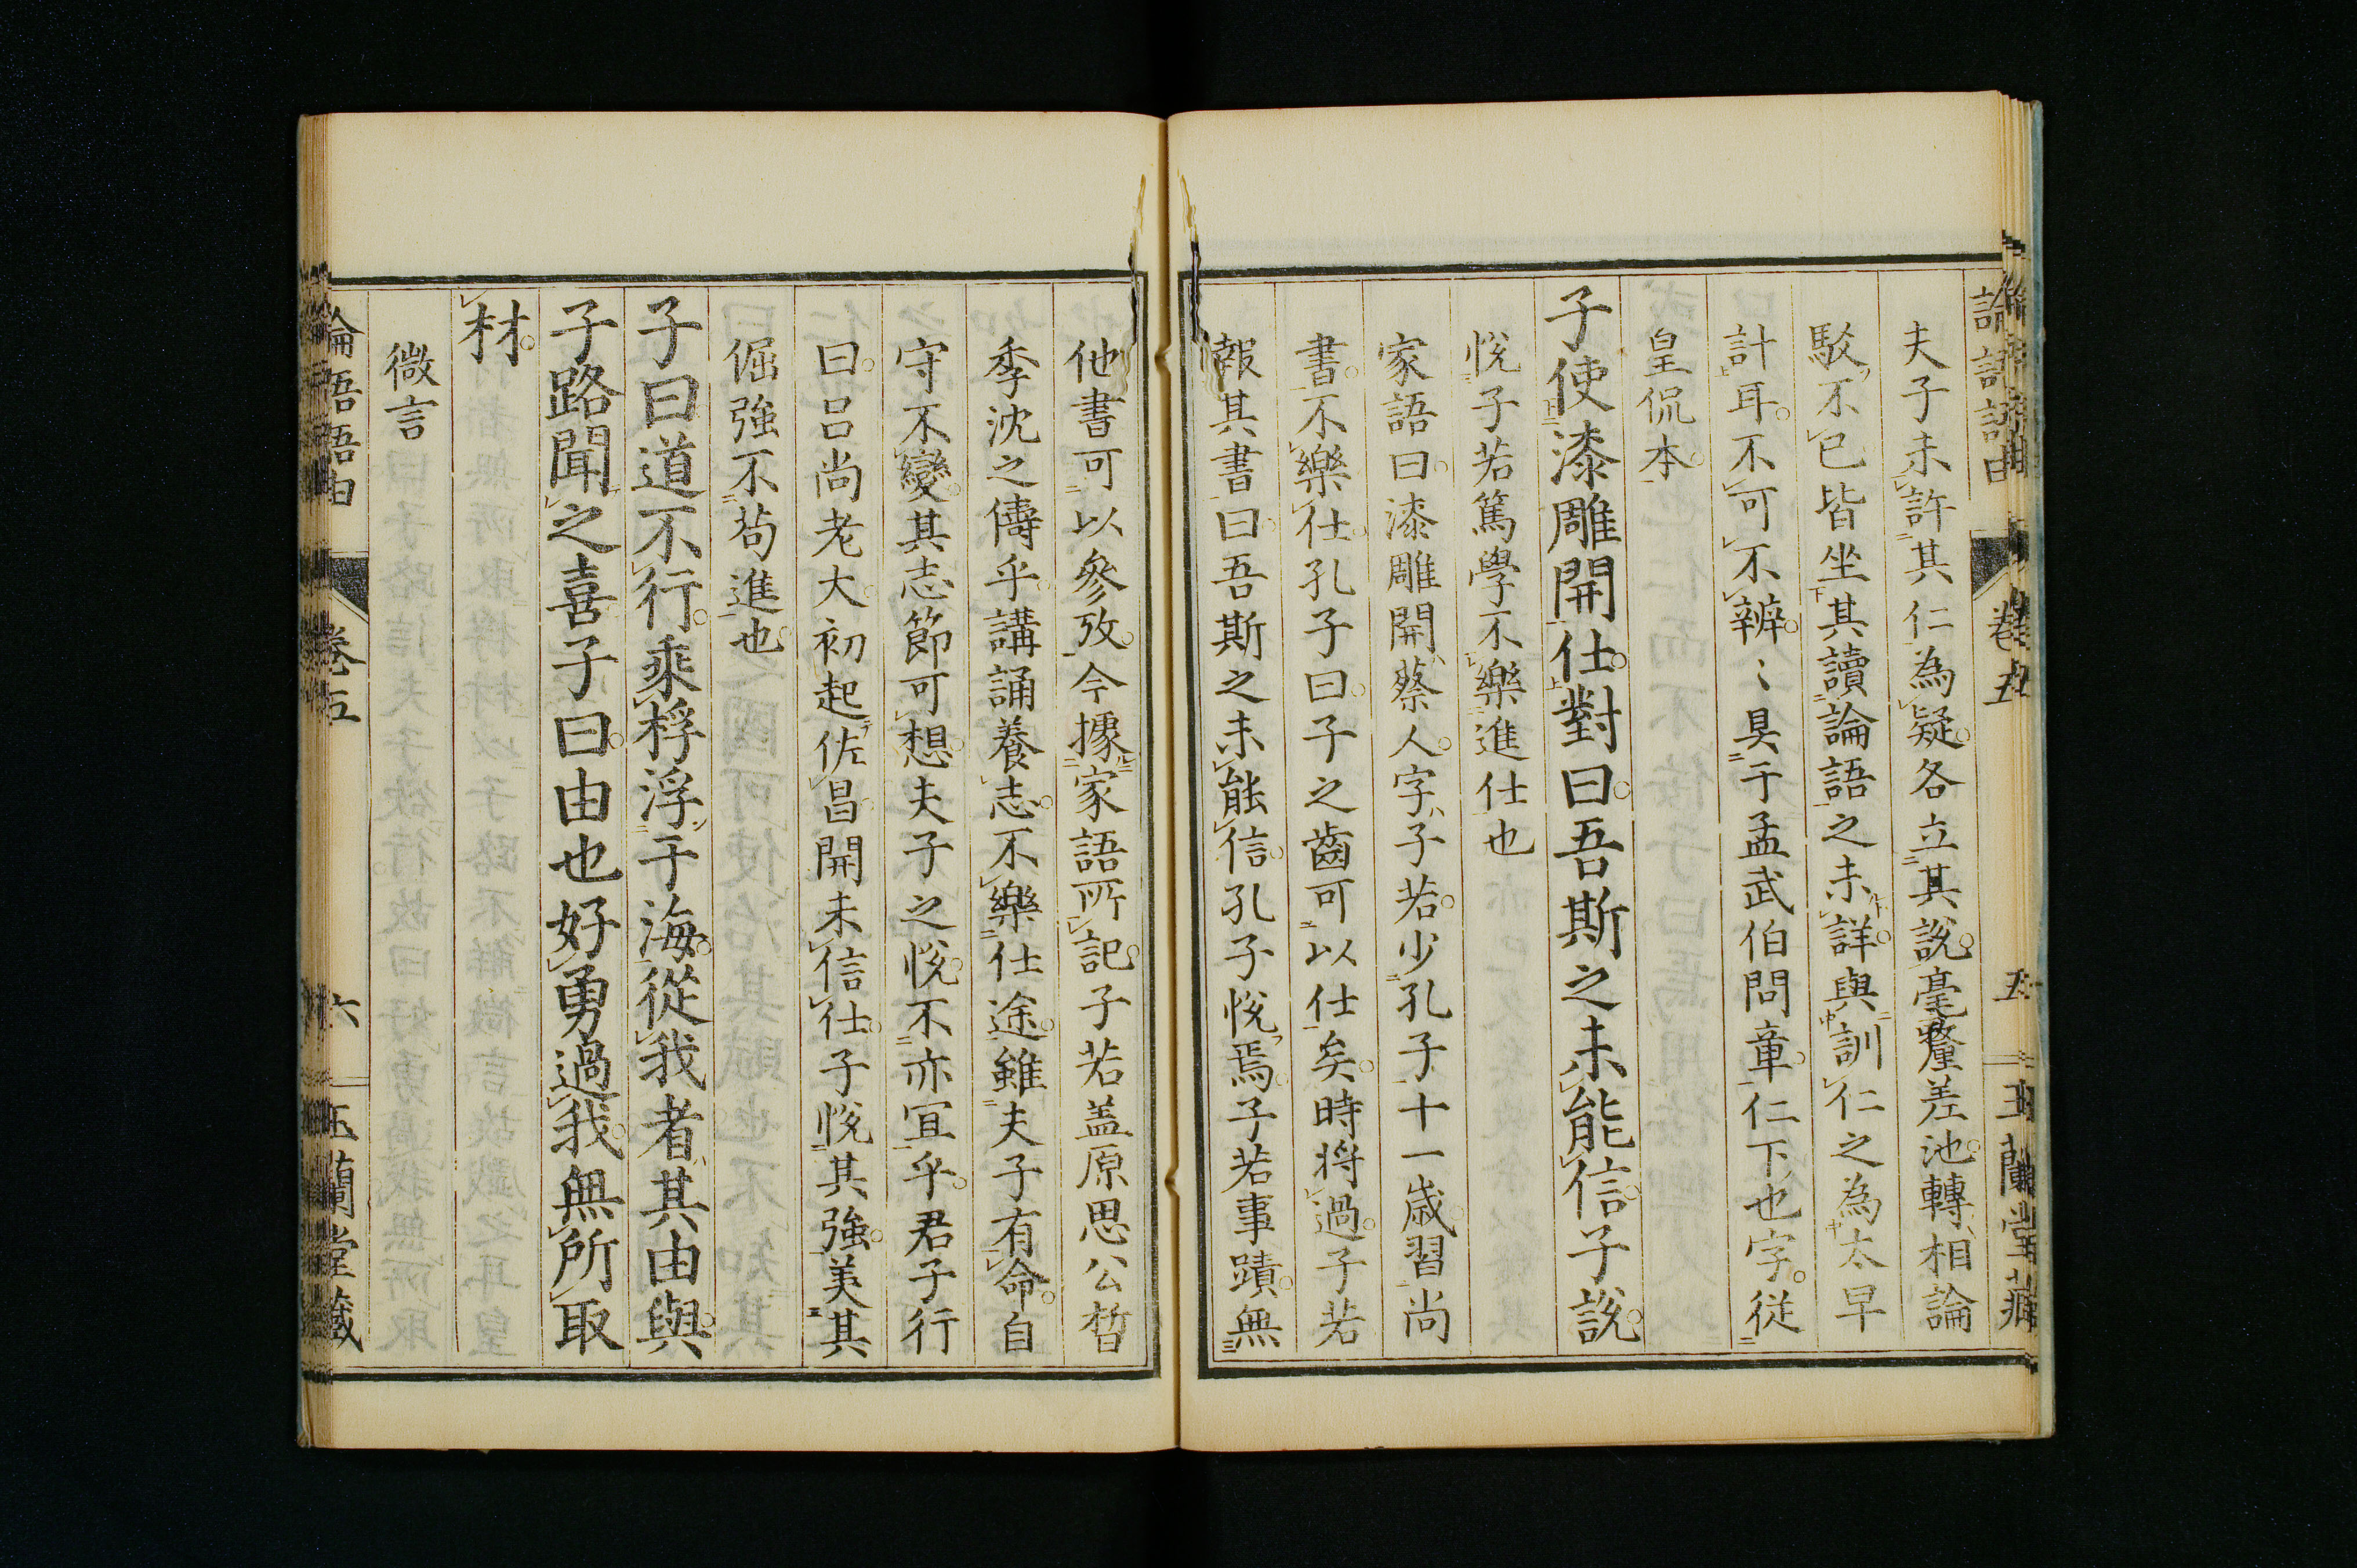 論語語由 卷五 五 玉蘭堂藏
夫子未許其仁為疑各立其說毫釐差池轉相論
駁不已皆坐其讀論語之未詳與訓仁之為太早
計耳不可不辨〻具于孟武伯問章仁下也字從
皇侃本
子使漆雕開仕對曰吾斯之未能信子說
悅子若篤學不樂進仕也
家語曰漆雕開蔡人字子若少孔子十一歲習尚
書不樂仕孔子曰子之齒可以仕矣時將過子若
報其書曰吾斯之未能信孔子悅焉子若事蹟無
他書可以參攷今據家語所記子若盖原思公晳
季沈之儔乎講誦養志不樂仕途雖夫子有命自
守不變其志節可想夫子之悅不亦宜乎君子行
曰呂尚老大初起佐昌開未信仕子悅其強美其
倔強不苟進也
子曰道不行乘桴浮于海從我者其由與
子路聞之喜子曰由也好勇過我無所取
材
微言
論語語由 卷五 六 玉蘭堂藏